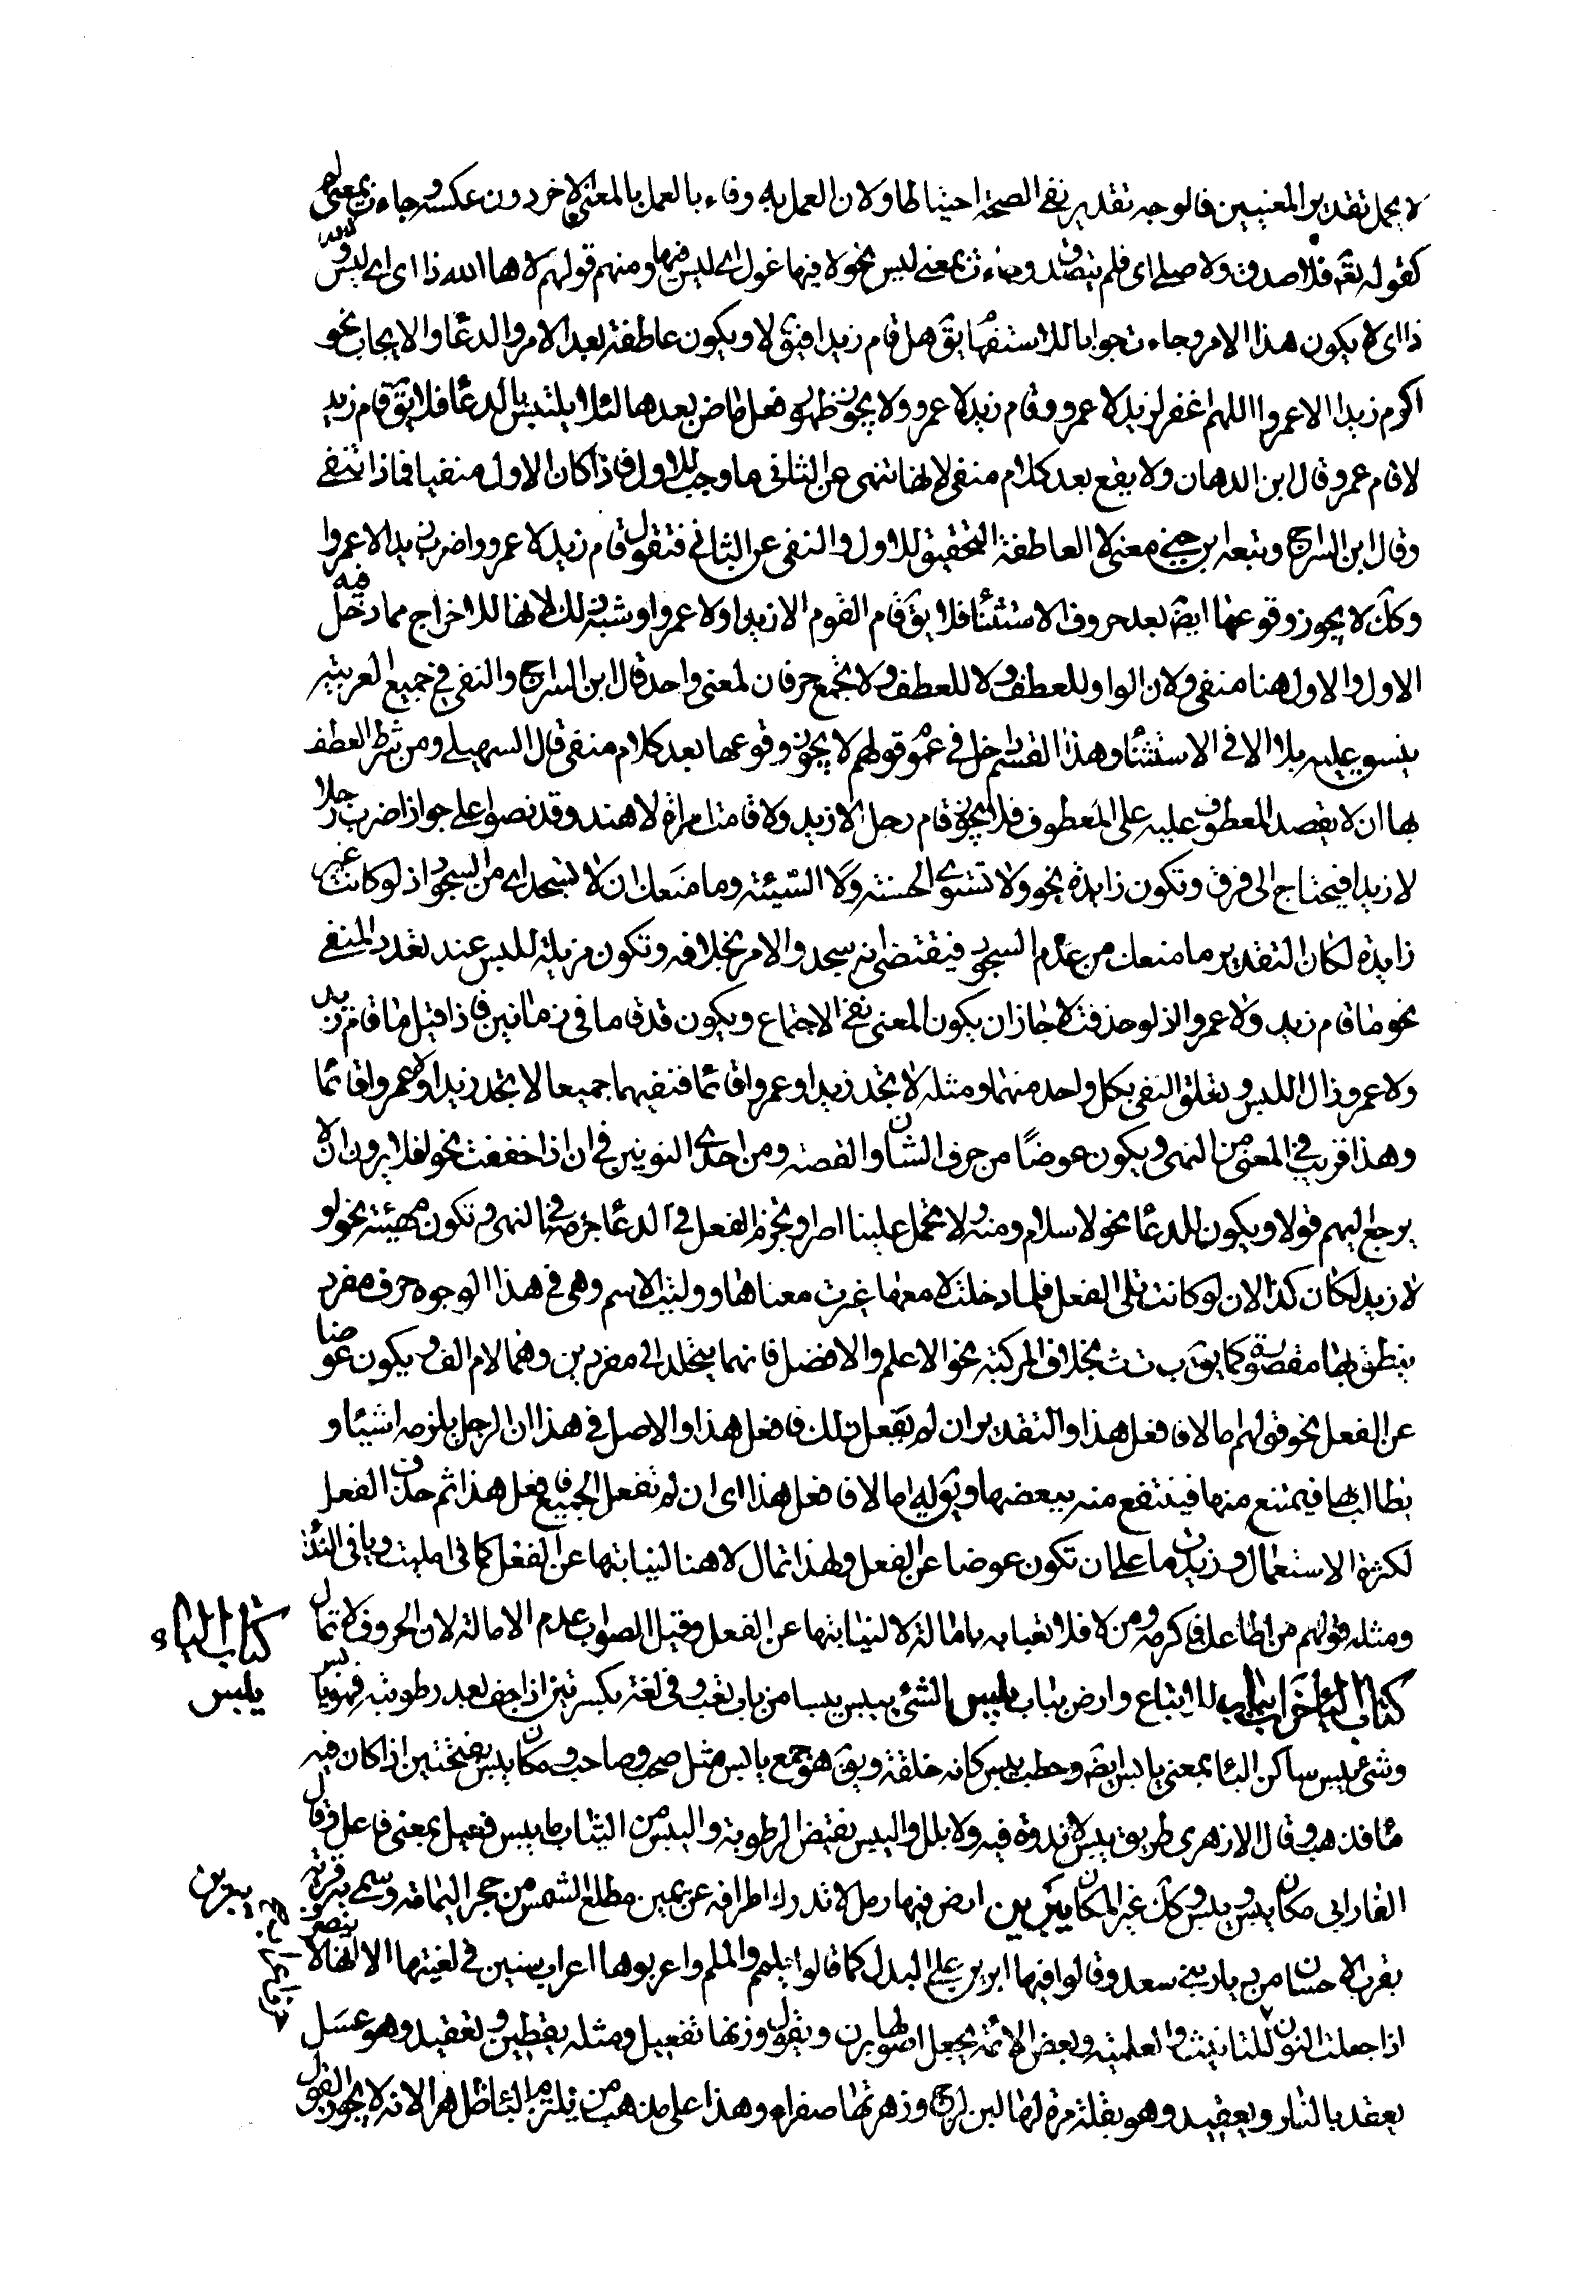 لا يحمل تقدير المعنيين فالوجه تقدير نفي الصحة احتياطا ولان العمل به وفاء بالعمل بالمعنى الاخر دون عكسه وجاءت بمعنى لم
كقوله تعه فلا صدق ولا صلى اى فلم يتصدق وجاءت بمعنى ليس نحو لا فيها غول اى ليس فيها ومنهم قولهم لاها الله ذا اى ليس والله
ذا اى لا يكون هذا الامر وجاءت جوابا للاستفهام يق هل قام زيد فيق لا ويكون عاطفة بعد الامر والدعا والايجاب نحو
اكرم زيدا لا عمروا اللهم اغفر لزيد لا عمرو وقام زيد لا عمرو ولا يجوز ظهور فعل ماض بعدها لئلا يلتبس بالدعا فلا يق قام زيد
لا قام عمرو قال ابن الدهان ولا يقع بعد كلام منفى لانها تنفى عن الثانى ما وجب للاول فاذا كان الاول منفيا فماذا تنفى
وقال ابن السراج وتبعه ابن جنى معنى لا العاطفة التحقيق للاول والنفى عن الثانى فتقول قام زيد لا عمرو واضرب زيدا لا عمروا
وكك لا يجوز وقوعها ايض بعد حروف الاستثنا فلا يق قام القوم الا زيدا ولا عمروا وشبه ذلك لانها للاخراج مما دخل فيه
الاول والاول هنا منفى ولان الواو للعطف ولا للعطف ولا يجتمع حرفان لمعنى واحد قال ابن السراج والنفى فى جميع العربية
ينسق عليه بلا الا فى الاستثنا وهذا القسم داخل فى عموم قولهم لا يجوز وقوعها بعد كلام منفى قال السهيلى ومن شرط العطف
بها ان لا يصدق المعطوف عليه على المعطوف فلا يجوز قام رجل لا زيد ولا قامت امراة لا هند وقد نصوا على جواز اضرب رجلا
لا زيدا فيحتاج الى فرق وتكون زايدة نحو ولا تستوى الحسنة ولا السيئة وما منعك ان لا تسجد اى من السجود اذ لو كانت غير
زايدة لكان التقدير ما منعك من عدم السجود فيقتضى انه سجد والامر بخلافه وتكون مزيلة للبس عند تعدد المنفى
نحو ما قام زيد ولا عمرو اذ لو حذفت لا جاز ان يكون المعنى نفى الاجتماع ويكون قد قاما فى زمانين فاذا قيل ما قام زيد
ولا عمرو زال اللبس وتعلق النفى بكل واحد منهما ومثله لا تجد زيدا وعمروا قائما فنفيهما جميعا لا تجد زيدا ولا عمروا قائما
وهذا قريب فى المعنى من النهى ويكون عوضا من حرف الشان والقصة ومن احدى النونين فى ان اذا خففت نحو افلا يرون ان لا
يرجع اليهم قولا ويكون للدعا نحو لا سلام ومنه ولا تحمل علينا اصرا وتجزم الفعل فى الدعا جزمه فى النهى وتكون مهيئة نحو لو
لا زيد لكان كذا لان لو كانت تلى الفعل فلما دخلت لا معها غيرت معناها ووليت الاسم وهى فى هذا الوجوه حرف مفرد
ينطق بها مقصورة كما يق ب ت ث بخلاف المركبة نحو الاعلم والافضل فانهما ينحلان الى مفردين وهما لام الف ويكون عوضا
عن الفعل نحو قولهم اما لا فافعل هذا والتقدير ان لم تفعل ذلك فافعل هذا والاصل فى هذا ان الرجل يلزمه اشيئا و
يطالب بها فيمتنع منها فينتفع منه ببعضها ويق له اما لا فافعل هذا اى ان لم تفعل الجميع فافعل هذا ثم حذف الفعل
لكثرة الاستعمال وزيدت ما على ان تكون عوضا عن الفعل ولهذا تمال لا هنا لنيابتها عن الفعل كما فى امليت ويا فى الندا
ومثله قولهم من اطاعك فاكرمه ومن لا فلا تعبا به بامالة لا لنيابتها عن الفعل وقيل الصواب عدم الامالة لان الحروف لا تمال
كتاب الياء
كتاب الياء خراب يباب للاتباع وارض يباب يبس الشئ ييبس يبسا من باب تعب وفى لغة بكسرتين اذا جف بعد رطوبته فهو يابس
يبس
وشئ يبس ساكن البا بمعنى يابس ايض وحطب يبس كانه خلقة ويق هو جمع يابس مثل صحب وصاحب ومكان يبس بفتحتين اذا كان فيه
ما فذهب وقال الازهرى طريق يبس لا ندوة فيه ولا بلل واليبس نقيض الرطوبة واليبيس من النبات ما يبس فعيل بمعنى فاعل وقال
الفارابى مكان يبس ويبس وكك غير المكان يبرين ارض فيها رمل لا تدرك اطرافه عن يمين مطلع الشمس من حجر اليمامة وسمى به قرية
يبرين
بقرب الاحسا من ديار بنى سعد وقالوا فيها ابرين على البدل كما قالوا يلملم والملم واعربوها اعراب نصيبين فى لغيتها الا انها لا
اذا جعلت النون للتانيث والعلمية وبعض الائمة يجعل اصولها يبرن ويقول وزنها تفعيل ومثله يقطين ويعقيد وهو عسل
يعقد بالنار ويعضيد وهو بقلة مرة لها لبن لزج وزهرتها صفراء وهذا على مذهب من يلتزم البنا ظاهرا لانه لا يجوز القول